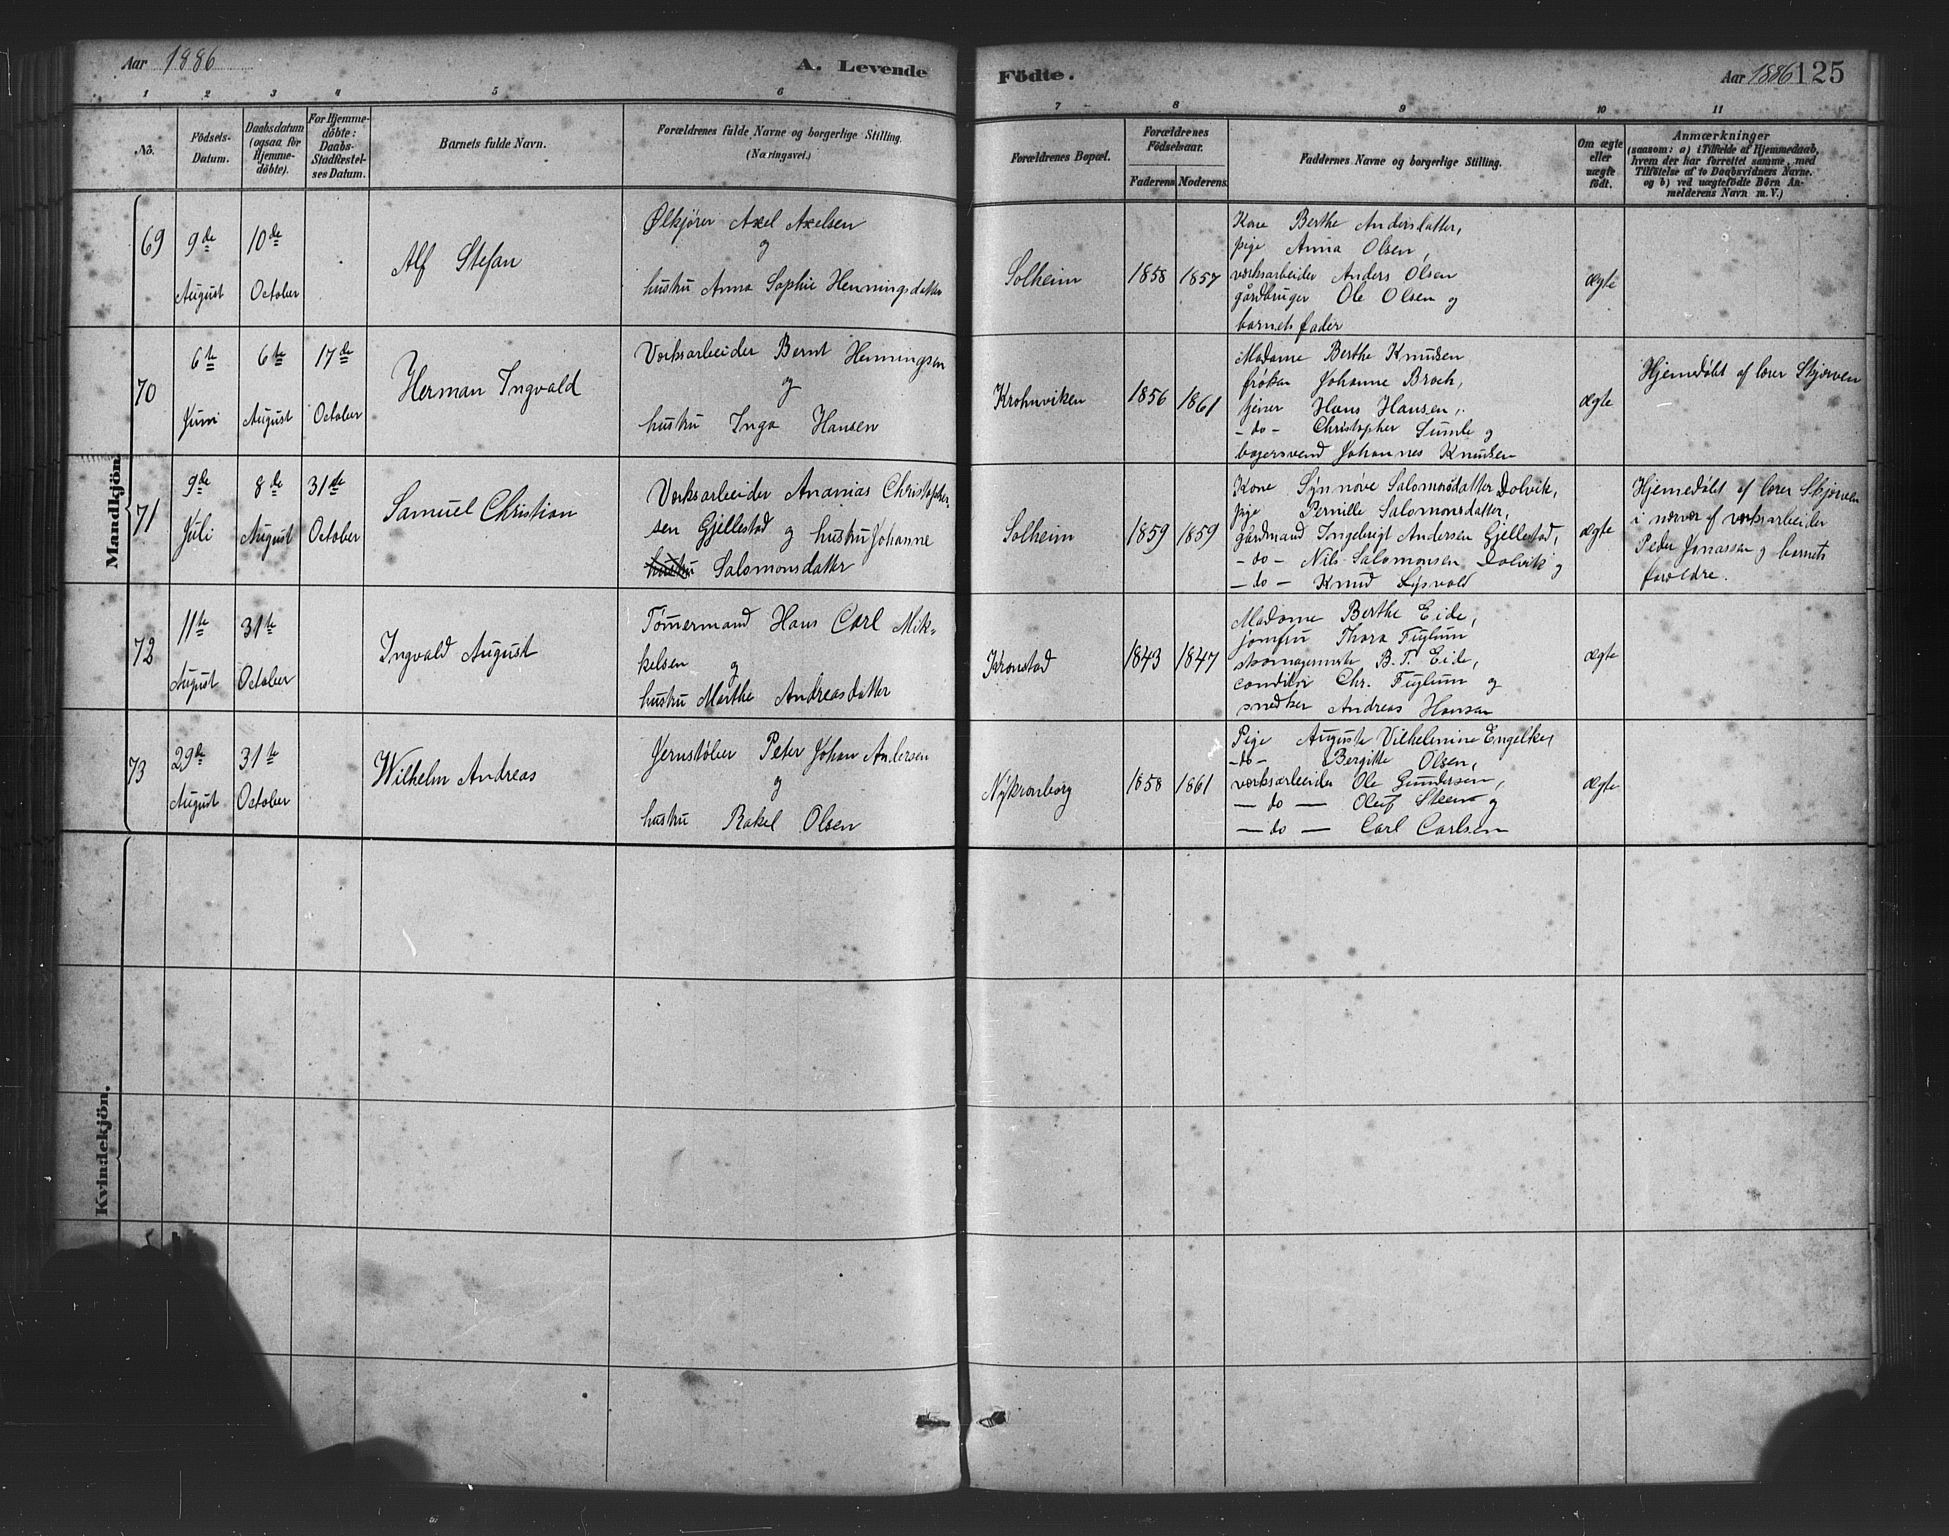 Aar 1886
A. Levende
Fôdte.
Aar 1886 125
1 2 3 4 5 6 7 8 9 10 11
No.
Födsels-
Datum.
Daabsdatum
(ogsaa for
Hjemme-
döbte).
For Hjemme-
döbte:
Daabs-
Stadfæstel-
ses Datum.
Barnets fulde Navn.
Forældrenes fulde Navne og borgerlige Stilling.
(Næringsvei.)
Forældrenes Bopæl.
Forældrenes
Födselsaar.
Faderens Moderens.
Faddernes Navne og borgerlige Stilling.
Om ægte
eller
uægte
födt.
Anmærkninger
(saasom: a) i Tilfælde af Hjemmedaab,
hvem der har forrettet samme, med
Tilföielse af to Daabsvidners Navne.
og b) ved uægtefödte Börn An-
melderens Navn m.V.)
Mandkjön.
69
9de
August
10de
October
Alf Stefan
Ølkjører Axel Axelsen
og
hustru Anna Sophie Henningsdatter
Solheim
1858
1857
Kone Berthe Andersdatter,
pige Anna Olsen,
værksarbeider Anders Olsen
gårdbruger Ole Olsen og
barnets fader
ægte
70
6te
Juni
6te
August
17de
October
Herman Ingvald
Værksarbeider Bernt Henningsen
og
hustru Inga Hansen
Krohnviken
1856
1861
Madame Berthe Knudsen
frøken Johanne Broch,
tjener Hans Hansen,
- do - Christopher Sumle og
bagersvend Johannes Knudsen
ægte
Hjemedøbt af lærer Skjerven
71
9de
Juli
8de
August
31te
October
Samuel Christian
Værksarbeider Ananias Christopher-
sen Gjellestad og hustru Johanne
hustru Salomonsdatter
Solheim
1859
1859
Kone Synnøve Salomonsdatter Dolvik,
pige Pernille Salomonsdatter,
gårdmand Ingebrigt Andersen Gjellestad,
- do - Nils Salomonsen Dolvik og
- do - Knud
ægte
Hjemedøbt af lærer Skjerven
i nærvær af værksarbeider
Peder Jonassen og barnets
forældre.
72
11te
August
31te
October
Ingvald August
Tømermand Hans Carl Mik-
kelsen og
hustru Marthe Andreasdatter
Kronstad
1843
1847
Madame Berthe Eide,
jomfru Thora Fuglum
skomagermster B. T. Eide,
conditor Chr. Fuglum og
snedker Andreas Hansen
ægte
73
29de
August
31te
October
Wilhelm Andreas
Jernstøber Peter Johan Andersen
og
hustru Rakel Olsen
Nykronborg
1858
1861
Pige Auguste Vilhelmine Engelke,
- do - Bergitte Olsen,
værksarbeider Ole Gundersen,
- do - Oluf Steen og
- do - Carl Carlsen
ægte
Kvindekjön.